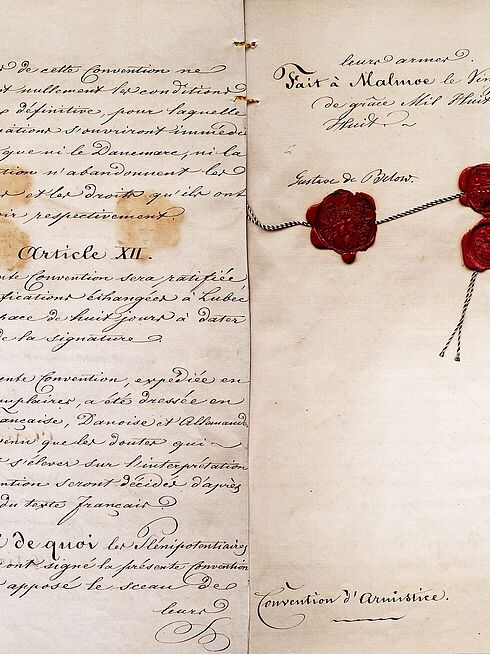 de cette Convention ne
nullement les conditions
définitive, pour laquelle
s'ouvriront immédi
que ni le Danemarc, ni la
tion n'abandonnent les
et les droits qu'ils ont
oir respectivement
Article XII.
nte Convention sera ratifiée
ifications échangées à Lubec
pace de huit jours à dater
de la signature.
ente Convention, expédiée en
mplaires, a été dressée en
ançaise, Danoise et Allemande
venu que les doutes qui
s'élever sur l'interprétation
ention seront décidés d'après
du texte français.
de quoi les Plénipotentiaires
ont signé la présente Convention
apposé le sceau de
leurs
leurs armes.
Fait à Malmoe le Vin
de grâce Mil Huit
Huit.
Gustave de Bülow.
Convention d'Armistice.